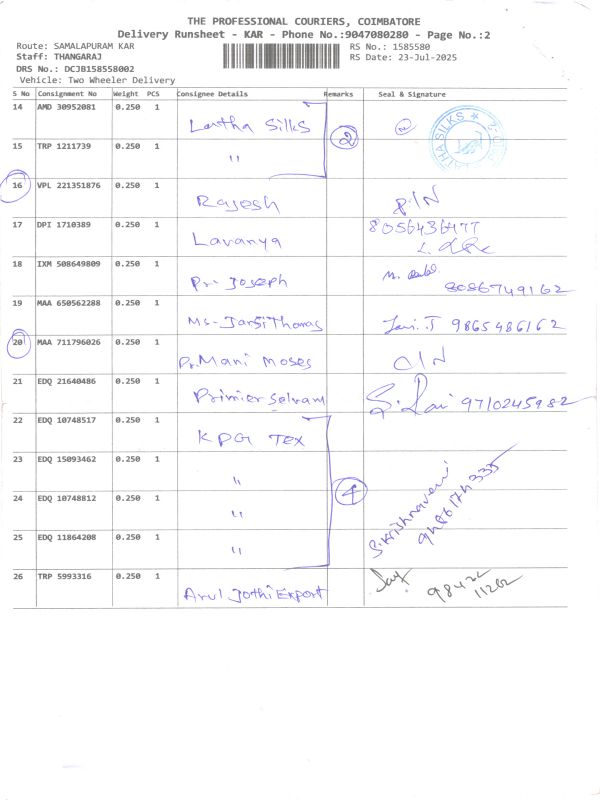 THE PROFESSIONAL COURIERS, COIMBATORE
Delivery Runsheet - KAR - Phone No.:9047080280 - Page No.:2
Route: SAMALAPURAM KAR RS No.: 1585580
Staff: THANGARAJ RS Date: 23-Jul-2025
DRS No.: DCJB158558002
Vehicle: Two Wheeler Delivery
S No Consignment No Weight PCS Consignee Details Remarks Seal & Signature
14 AMD 30952081 0.250 1 Lartha Silks 2
15 TRP 1211739 0.250 1 "
16 VPL 221351876 0.250 1 Rajesh P.IN
17 DPI 1710389 0.250 1 Lavanya 8056436477
18 IXM 508649809 0.250 1 Pr. Joseph 8086749162
19 MAA 650562288 0.250 1 Ms. Jansi Thomas 9865486162
20 MAA 711796026 0.250 1 Pr. Mani Moses OIN
21 EDQ 21640486 0.250 1 Primier Selvam 9710245982
22 EDQ 10748517 0.250 1 KPG TEX 4
23 EDQ 15093462 0.250 1 " S.Krishnaveni
24 EDQ 10748812 0.250 1 "
25 EDQ 11864208 0.250 1 "
26 TRP 5993316 0.250 1 Arul Jothi Export 98422
11202